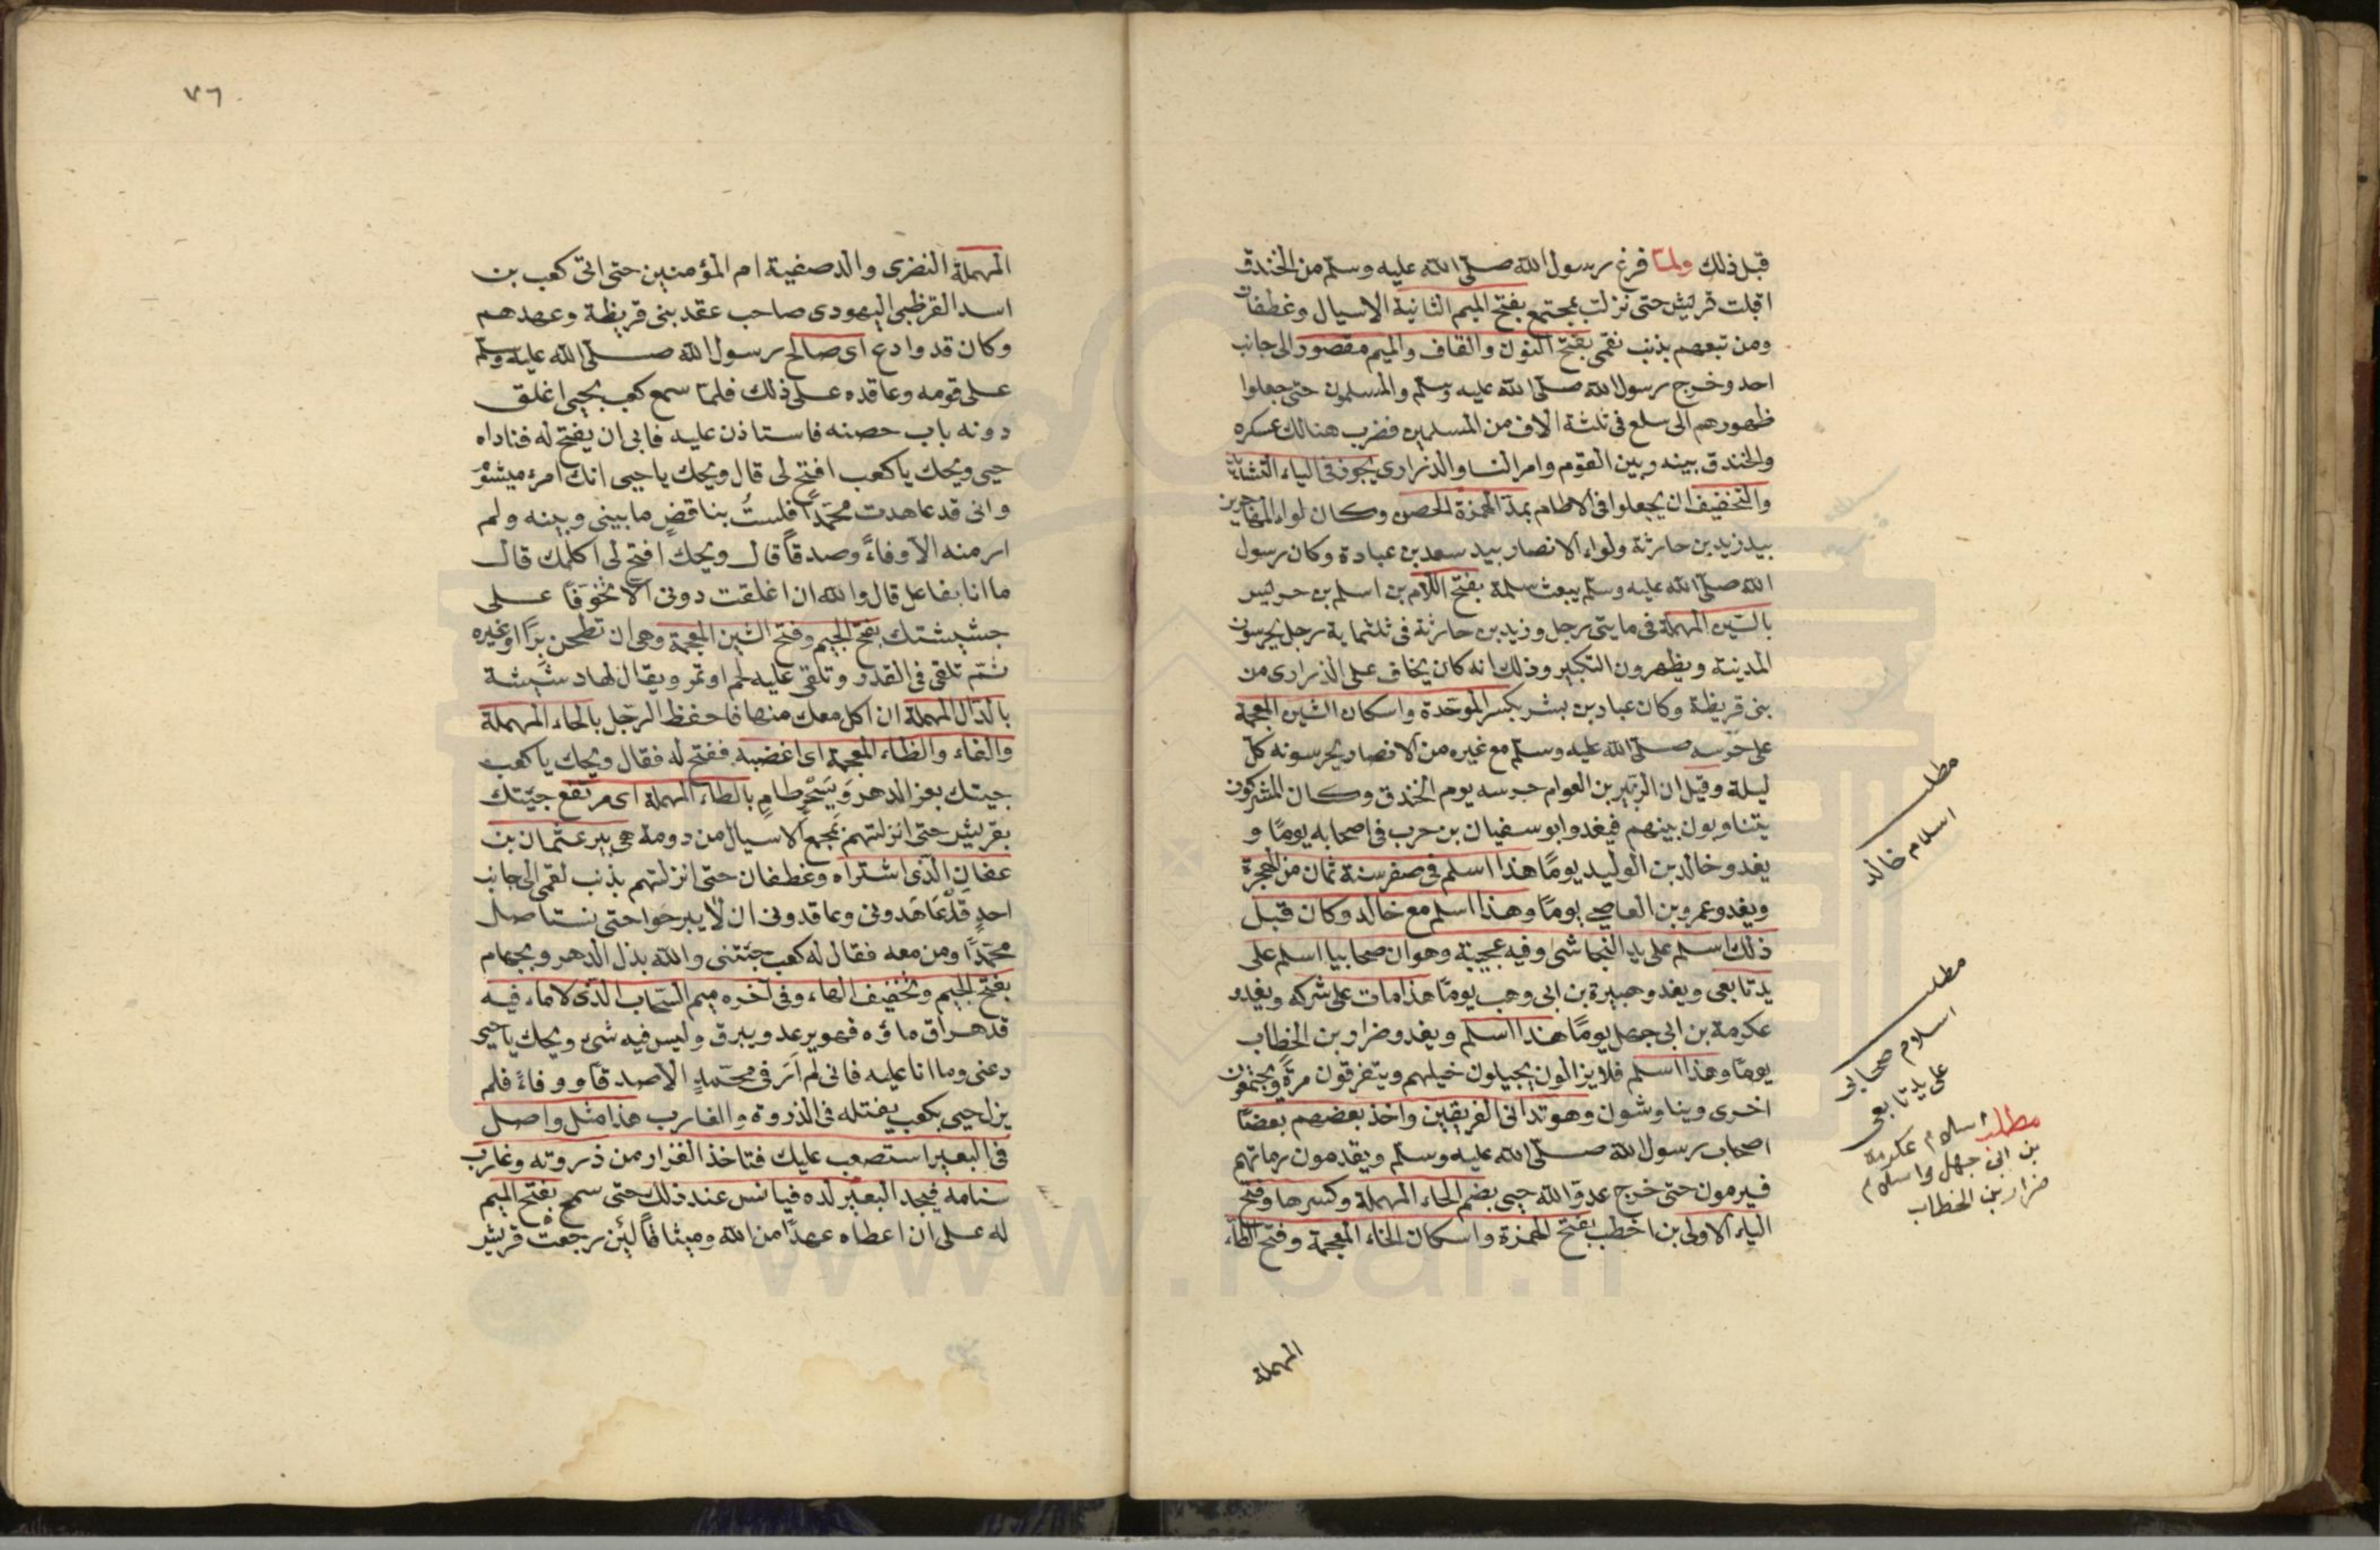 قبل ذلك ولما فرغ رسول الله صلى الله عليه وسلم من الخندق
اقبلت قريش حتى نزلت بمجتمع بفتح الميم الثانية الاسيال وغطفان
ومن تبعهم بذنب نقمى بفتح النون والقاف والميم مقصور الى جانب
احد وخرج رسول الله صلى الله عليه وسلم والمسلمون حتى جعلوا
ظهورهم الى سلع في ثلثة الاف من المسلمين فضرب هنالك عسكره
والخندق بينه وبين القوم وامر النسا والذراري يجوز في الياء التشديد
والتخفيف ان يجعلوا في الاطام بمد الهمزة الحصن وكان لواء المهاجرين
بيد زيد بن حارثة ولواء الانصار بيد سعد بن عبادة وكان رسول
الله صلى الله عليه وسلم يبعث سلمة بفتح اللام بن اسلم بن حريس
بالسين المهملة في مايتي رجل وزيد بن حارثة في ثلثماية رجل يحرسون
المدينة ويظهرون التكبير وذلك انه كان يخاف على الذراري من
بني قريظة وكان عباد بن بشر بكسر الموحدة واسكان الشين المعجمة
على حرسه صلى الله عليه وسلم مع غيره من الانصار يحرسونه كل
ليلة وقيل ان الزبير بن العوام حرسه يوم الخندق وكان المشركون
يتناوبون بينهم فيغدو ابو سفيان بن حرب في اصحابه يومًا و
يغدو خالد بن الوليد يومًا هذا اسلم في صفر سنة ثمان من الهجرة
ويغدو عمرو بن العاصي يومًا وهذا اسلم مع خالد وكان قبل
ذلك اسلم على يد النجاشى وفيه عجيبة وهو ان صحابيا اسلم على
يد تابعي ويغدو هبيرة بن ابي وهب يومًا هذا مات على شركه ويغدو
عكرمة بن ابي جهل يومًا هذا اسلم ويغدو ضرار بن الخطاب
يومًا وهذا اسلم فلا يزالون يجيلون خيلهم ويتفرقون مرةً ويجتمعون
اخرى ويناوشون وهو تداني الفريقين واخذ بعضهم بعضًا
اصحاب رسول الله صلى الله عليه وسلم ويقدمون رماتهم
فيرمون حتى خرج عدو الله حيي بضم الحاء المهملة وكسرها وفتح
الياء الاولى بن اخطب بفتح الهمزة واسكان الخاء المعجمة وفتح الطاء
المهملة
مطلب
اسلام خالد
مطلب
اسلام صحابي
على يد تابعي
مطلب اسلام عكرمة
بن ابي جهل واسلام
ضرار بن الخطاب
٧٦
المهملة النضرى والد صفية ام المؤمنين حتى اتى كعب بن
اسد القرظي اليهودى صاحب عقد بني قريظة وعهدهم
وكان قد وادع اى صالح رسول الله صلى الله عليه وسلم
على قومه وعاقده على ذلك فلما سمع كعب بحيي اغلق
دونه باب حصنه فاستاذن عليه فابى ان يفتح له فناداه
حيي ويحك يا كعب افتح لى قال ويحك يا حيى انك امرؤ ميشوم
وانى قد عاهدت محمدًا فلستُ بناقضٍ ما بيني وبينه ولم
ار منه الا وفاءً وصدقًا قال ويحك افتح لى اكلمك قال
ما انا بفاعل قال والله ان اغلقت دوني الا تخوفًا على
جشيشتك بفتح الجيم وفتح الشين المعجمة وهي ان تطحن برًا او غيره
ثم تلقى في القدر وتلقى عليه لحم او تمر ويقال لها دشيشة
بالدال المهملة ان اكل معك منها فاحفظ الرجل بالحاء المهملة
والفاء والظاء المعجمة اى اغضبه ففتح له فقال ويحك يا كعب
جيتك بعز الدهر وببحرٍ طامٍ بالطاء المهملة اى مرتفع جيتك
بقريش حتى انزلتهم بمجمع الاسيال من دومة هي بير عثمان بن
عفان الذى اشتراه وغطفان حتى انزلتهم بذنب نقمى الى جانب
احدٍ قد عاهدونى وعاقدونى ان لا يبرحوا حتى نستاصل
محمدًا ومن معه فقال له كعب جئتنى والله بذل الدهر وبجهام
بفتح الجيم وتخفيف الهاء وفى اخره ميم السحاب الذى لا ماء فيه
قد هراق ماؤه فهو يرعد ويبرق وليس فيه شئ ويحك يا حيى
دعنى وما انا عليه فانى لم ارَ فى محمدٍ الا صدقًا ووفاءً فلم
يزل حيى بكعب يفتله فى الذروة والغارب هذا مثل واصل
فى البعير استصعب عليك فتاخذ القراد من ذروته وغارب
سنامه فيجد البعير لذه فيانس عند ذلك حتى سمح بفتح الميم
له على ان اعطاه عهدًا من الله وميثاقًا لئن رجعت قريش